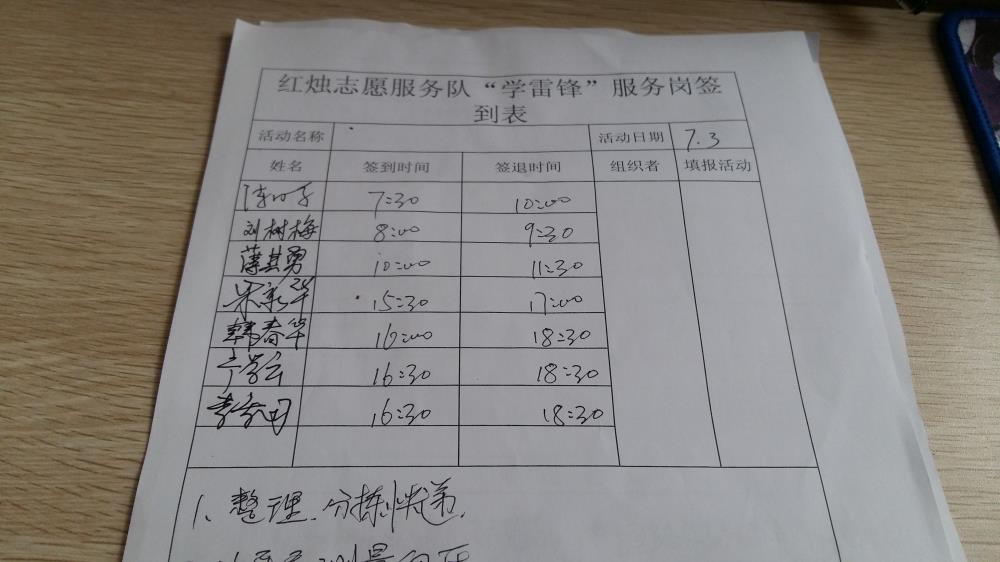 红烛志愿服务队“学雷锋”服务岗签
到表
活动名称 活动日期 7.3
姓名 签到时间 签退时间 组织者 填报活动
7:30 10:00
刘树梅 8:00 9:30
薄其勇 10:00 11:30
宋新华 15:30 17:00
韩春华 16:00 18:30
16:30 18:30
16:30 18:30
1、整理、分拣快递、
测量血压